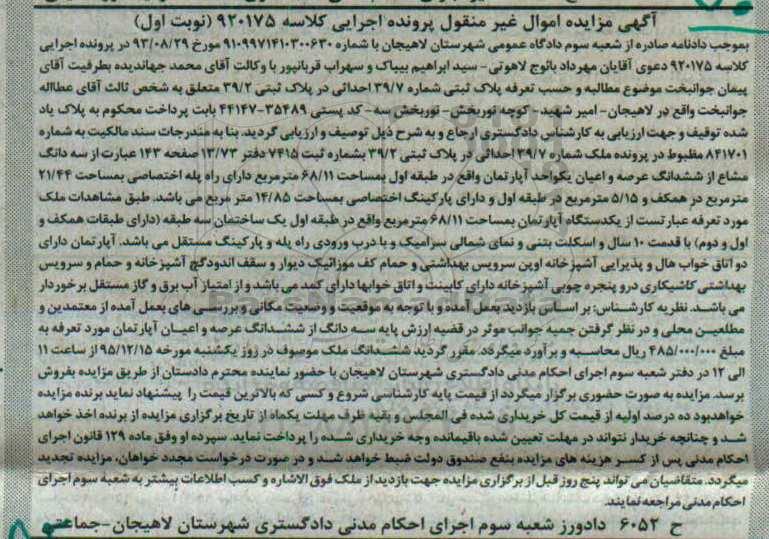 آگهی مزایده اموال غیر منقول پرونده اجرایی کلاسه ۹۲۰۱۷۵ (نوبت اول)
بموجب دادنامه صادره از شعبه سوم دادگاه عمومی شهرستان لاهیجان با شماره ۹۱۰۹۹۷۱۴۱۰۳۰۰۶۳۰ مورخ ۹۳/۰۸/۲۹ در پرونده اجرایی
کلاسه ۹۲۰۱۷۵ دعوی آقایان مهرداد بائوج لاهوتی - سید ابراهیم بیباک و سهراب قربانپور با وکالت آقای محمد جهاندیده بطرفیت آقای
پیمان جوانبخت موضوع مطالبه و حسب تعرفه پلاک ثبتی شماره ۳۹/۷ احداثی در پلاک ثبتی ۳۹/۲ متعلق به شخص ثالث آقای عطااله
جوانبخت واقع در لاهیجان - امیر شهید - کوچه نوربخش - نوربخش سه - کد پستی ۳۵۴۸۹-۴۴۱۴۷ بابت پرداخت محکوم به پلاک یاد
شده توقیف و جهت ارزیابی به کارشناس دادگستری ارجاع و به شرح ذیل توصیف و ارزیابی گردید. بنا به مندرجات سند مالکیت به شماره
۸۴۱۷۰۱ مظبوط در پرونده ملک شماره ۳۹/۷ احداثی در پلاک ثبتی ۳۹/۲ بشماره ثبت ۷۴۱۵ دفتر ۱۳/۷۳ صفحه ۱۴۳ عبارت از سه دانگ
مشاع از ششدانگ عرصه و اعیان یکواحد آپارتمان واقع در طبقه اول بمساحت ۶۸/۱۱ مترمربع دارای راه پله اختصاصی بمساحت ۲۱/۴۴
مترمربع در همکف و ۵/۱۵ مترمربع در طبقه اول و دارای پارکینگ اختصاصی بمساحت ۱۴/۸۵ متر مربع می باشد. طبق مشاهدات ملک
مورد تعرفه عبارتست از یکدستگاه آپارتمان بمساحت ۶۸/۱۱ مترمربع واقع در طبقه اول یک ساختمان سه طبقه (دارای طبقات همکف و
اول و دوم) با قدمت ۱۰ سال و اسکلت بتنی و نمای شمالی سرامیک و با درب ورودی راه پله و پارکینگ مستقل می باشد. آپارتمان دارای
دو اتاق خواب هال و پذیرایی آشپزخانه اوپن سرویس بهداشتی و حمام کف موزائیک دیوار و سقف اندودگچ آشپزخانه و حمام و سرویس
بهداشتی کاشیکاری درو پنجره چوبی آشپزخانه دارای کابینت و اتاق خوابها دارای کمد می باشد و از امتیاز آب برق و گاز مستقل برخوردار
می باشد. نظریه کارشناس: بر اساس بازدید بعمل آمده و با توجه به موقعیت و وضعیت مکانی و بررسی های بعمل آمده از معتمدین و
مطلعین محلی و در نظر گرفتن جمیه جوانب موثر در قضیه ارزش پایه سه دانگ از ششدانگ عرصه و اعیان آپارتمان مورد تعرفه به
مبلغ ۴۸۵/۰۰۰/۰۰۰ ریال محاسبه و برآورد میگردد. مقرر گردید ششدانگ ملک موصوف در روز یکشنبه مورخه ۹۵/۱۲/۱۵ از ساعت ۱۱
الی ۱۲ در دفتر شعبه سوم اجرای احکام مدنی دادگستری شهرستان لاهیجان با حضور نماینده محترم دادستان از طریق مزایده بفروش
برسد. مزایده به صورت حضوری برگزار میگردد از قیمت پایه کارشناسی شروع و کسی که بالاترین قیمت را پیشنهاد نماید برنده مزایده
خواهدبود ده درصد اولیه از قیمت کل خریداری شده فی المجلس و بقیه ظرف مهلت یکماه از تاریخ برگزاری مزایده از برنده اخذ خواهد
شد و چنانچه خریدار نتواند در مهلت تعیین شده باقیمانده وجه خریداری شده را پرداخت نماید. سپرده او وفق ماده ۱۲۹ قانون اجرای
احکام مدنی پس از کسر هزینه های مزایده بنفع صندوق دولت ضبط خواهد شد و در صورت درخواست مجدد خواهان، مزایده تجدید
میگردد. متقاضیان می تواند پنج روز قبل از برگزاری مزایده جهت بازدید از ملک فوق الاشاره و کسب اطلاعات بیشتر به شعبه سوم اجرای
احکام مدنی مراجعه نمایند.
ح ۶۰۵۲ دادورز شعبه سوم اجرای احکام مدنی دادگستری شهرستان لاهیجان - جماعتی